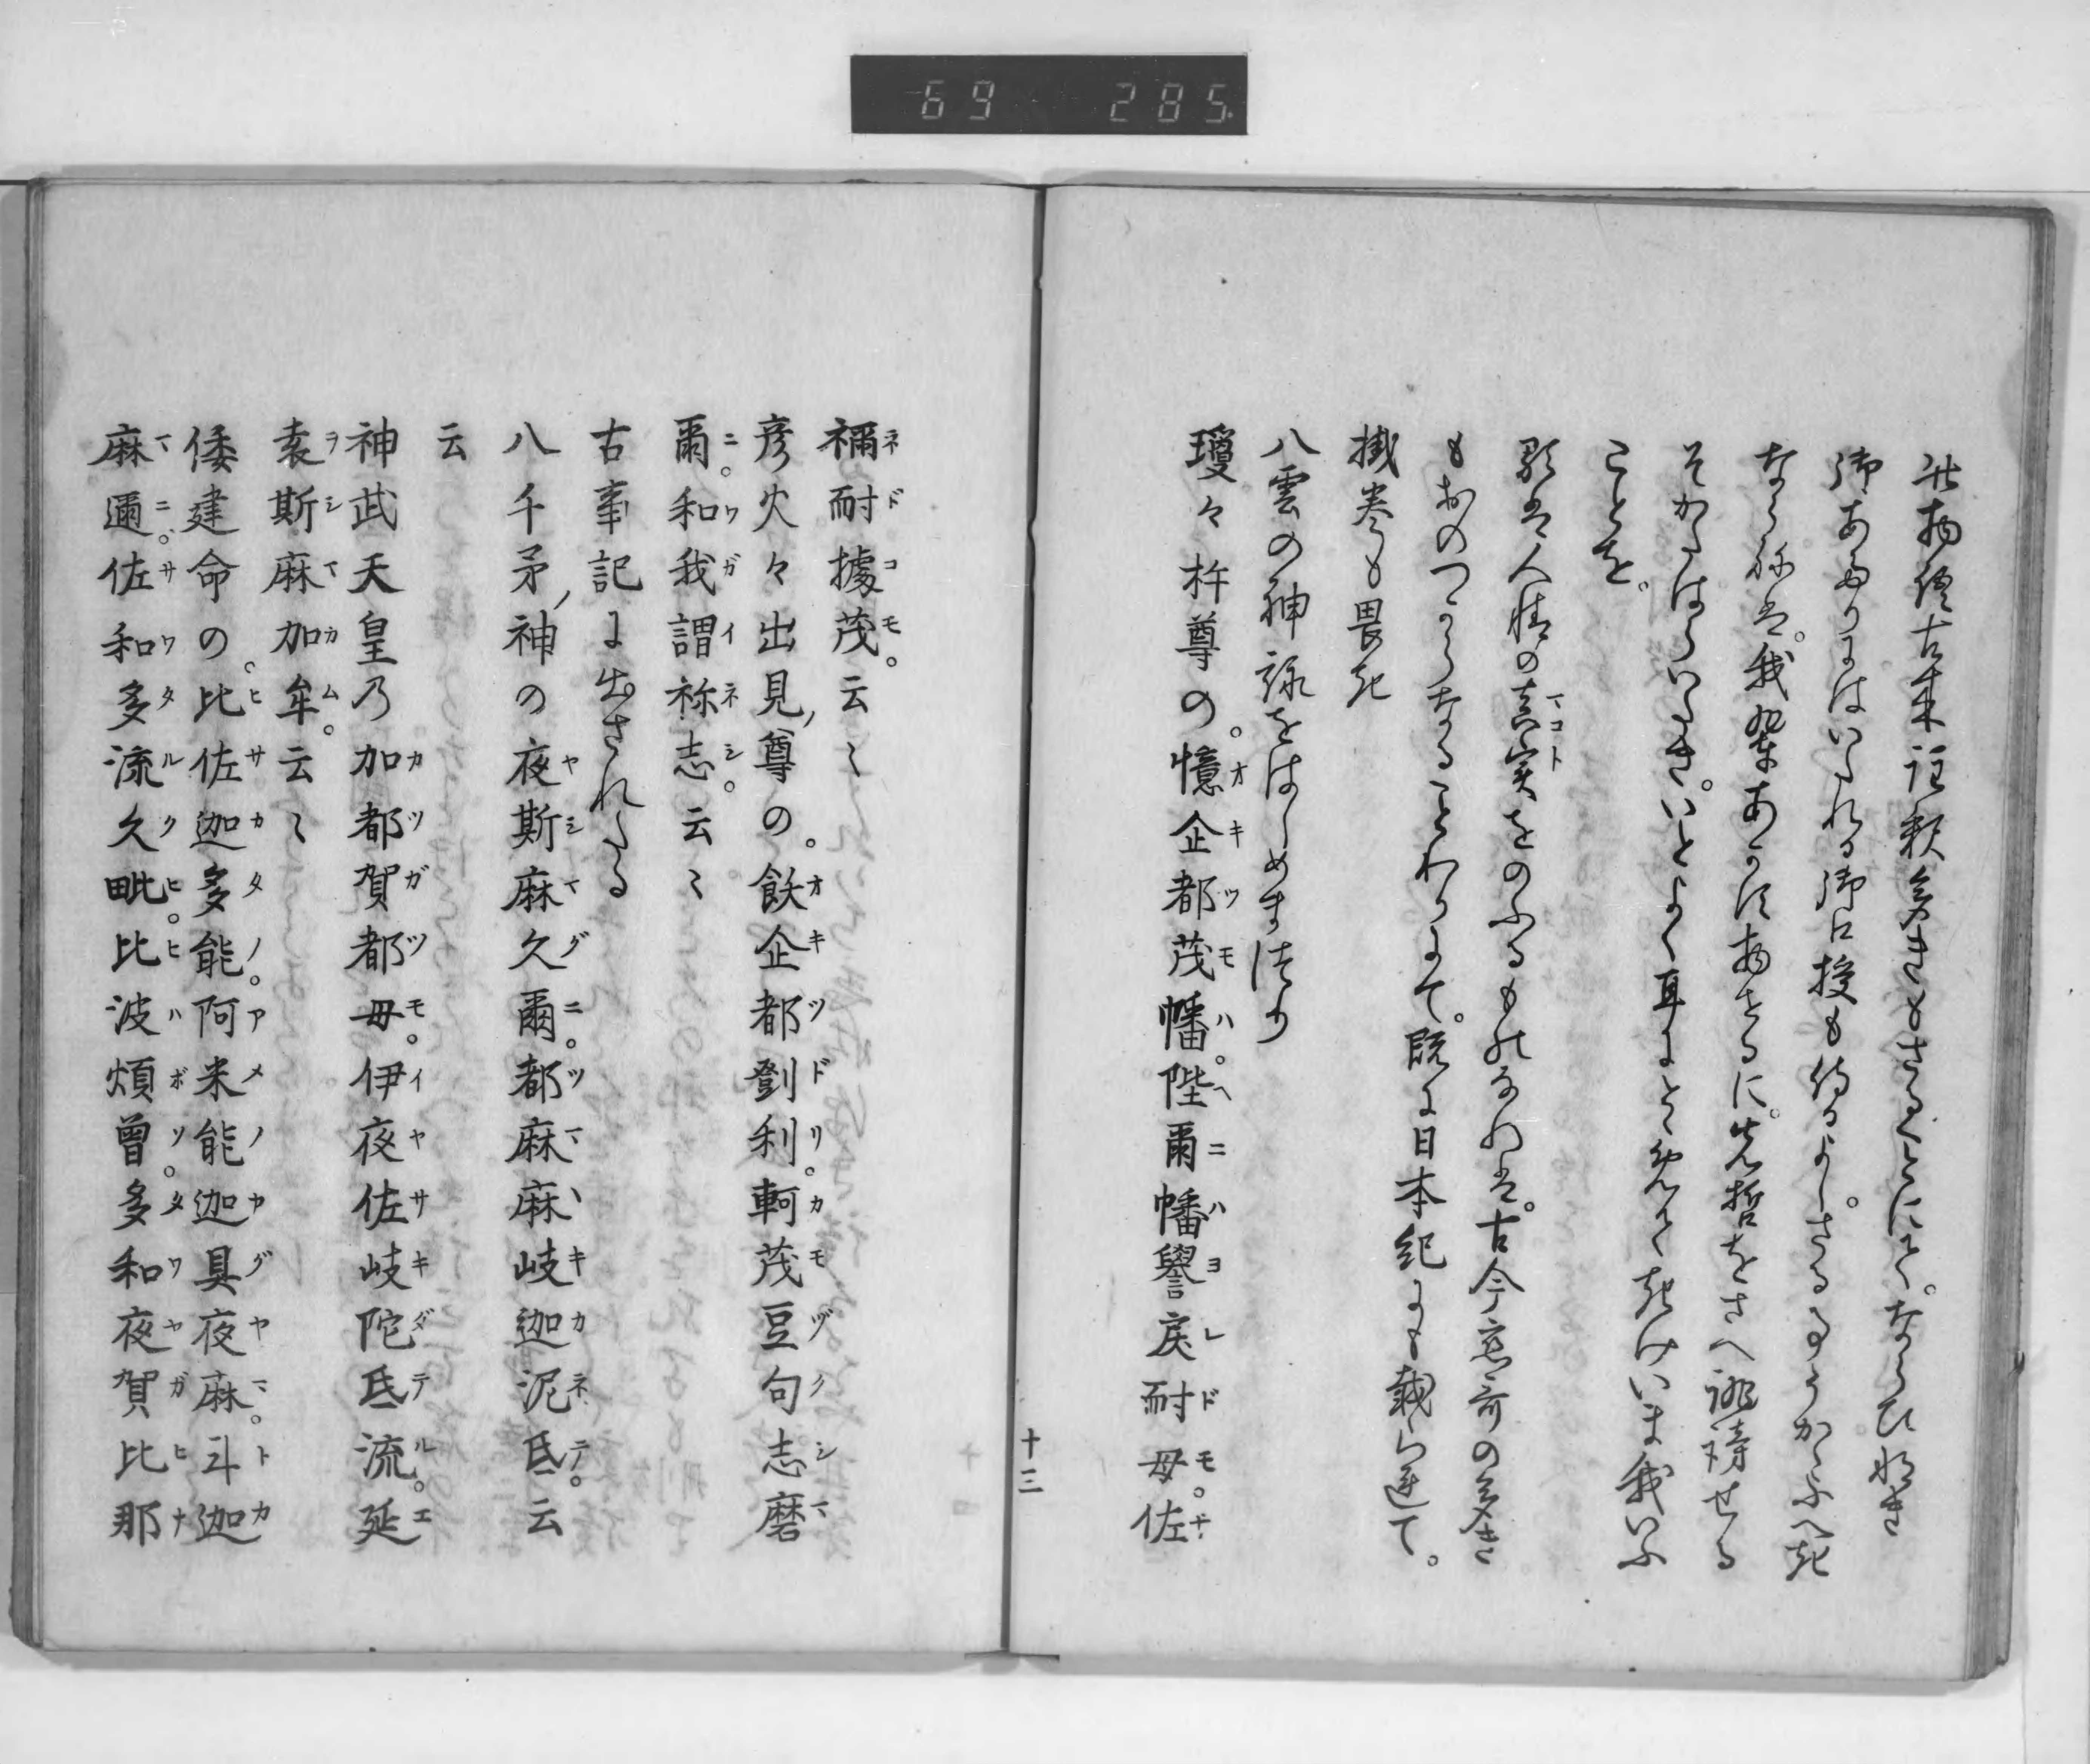 69 285
此物語古来註釈多きもさることにて。ならひなき
御あたりにはいたれる御口授も侍るよし。さる事うかゝふへき
ならねは。我輩あらぬ物せるに。先哲をさへ誹謗せる
そかたはらいたき。いとよく耳にとめてきけいま我いふ
ことを。
歌は人情の真実をのふるものなれは。古今恋哥の多き
もおのつからなることわりにて。既に日本紀にも載られて。
掛巻も畏き
八雲の神詠をはしめまつり
瓊々杵尊の。憶企都茂幡。陛爾幡譽戻耐母。佐
十三
禰耐據茂。云〻
彦火々出見ノ尊の。飫企都劉利。軻茂豆句志磨
爾。和我謂祢志。云〻
古事記に出されたる
八千矛ノ神の夜斯麻久爾。都麻麻岐迦泥氐。云
云
神武天皇乃加都賀都母。伊夜佐岐陀氐流。延
袁斯麻加牟。云〻
倭建命の。比佐迦多能。阿米能迦具夜麻。斗迦
麻邇。佐和多流久毗。比波煩曾。多和夜賀比那